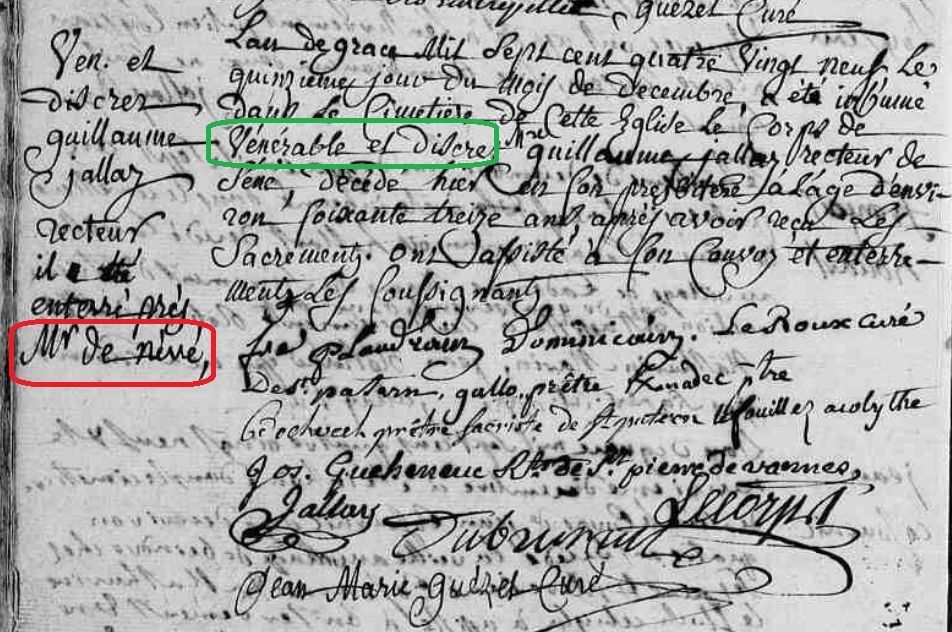 Guézet Curé
Ven. et
discret
guillaume
jallay
recteur
il a été
enterré prés
Mr de névé,
L'an de grace Mil Sept cent quatre Vingt neuf Le
quinzieme jour du Mois de decembre, a été inhumé
dans Le Cimetiére de Cette Eglise Le Corps de
Vénérable et Discre Mre guillaume jallay recteur de
Séné, décédé hier en Son presbitére, à L'âge d'envi-
ron soixante treize ans, aprés avoir reçu Les
Sacrements. ont assisté à Son Convoy et enterre-
ment Les Soussignants
fre Dominicain. Le Roux curé
De St. patern, gallo, prêtre ptre
prêtre sacriste de acolythe
Jos. Gueheneuc Rtr de St. pierre de vannes,
Jallay
Jean Marie Guézet Curé